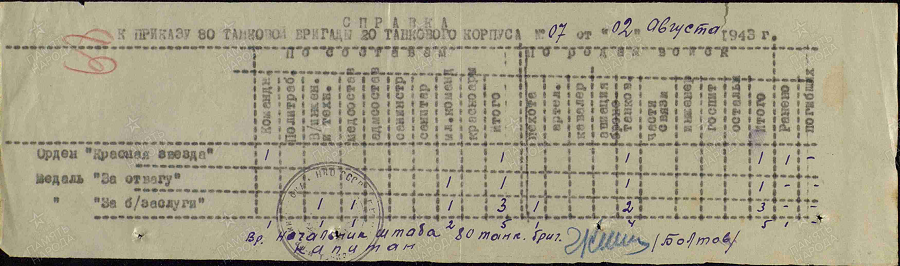 СПРАВКА
К ПРИКАЗУ 80 ТАНКОВОЙ БРИГАДЫ 20 ТАНКОВОГО КОРПУСА № 07 от "02" Августа 1943 г.
По составам По родам войск
командн политраб. в/инжен. и техн. санинстр санитар мл.команд красноарм итого пехота артел. кавалер авиация броне танков части связи инженер госпит осталън итого Ранено погибших
Орден "Красная звезда" 1 1 1 1 1 -
Медаль "За отвагу" 1 1 1 1 - -
" "За б/заслуги" 1 1 1 3 1 2 3 - -
1 1 1 2 5 1 4 5 1 -
Вр. Начальник штаба 80 танк. бриг.
капитан /Болтов/